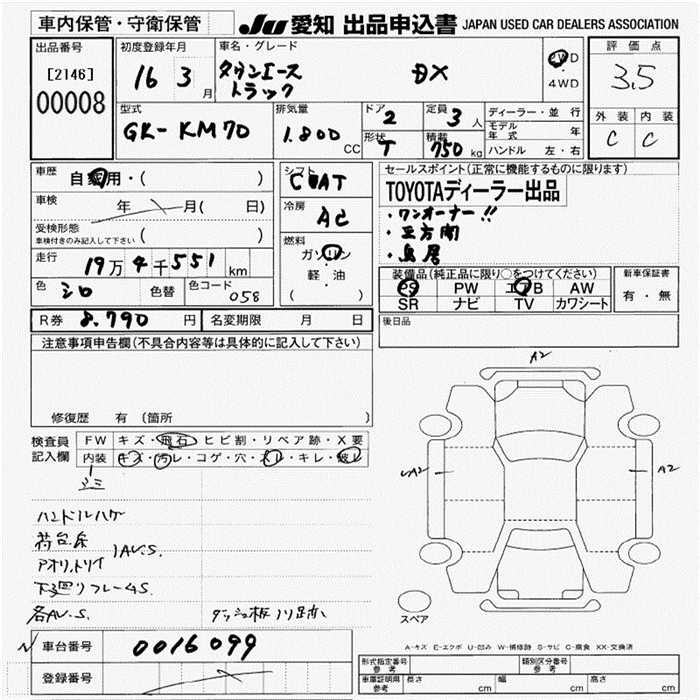 車内保管・守衛保管 JU 愛知 出品申込書 JAPAN USED CAR DEALERS ASSOCIATION
出品番号 初度登録年月 車名・グレード 評価点
[2146] 16 3月 タウンエース トラック DX 2WD・4WD 3.5
00008
型式 排気量 ドア 2 定員 3人 ディーラー・並行 外装 内装
GK-KM70 1.800 CC 形状 T 積載 750kg モデル年式 年 C C
ハンドル 左・右
車歴 自家用・( ) シフト セールスポイント(正常に機能するものに限ります)
車検 年 月( 日) COAT TOYOTAディーラー出品
受検形態 冷房 ・ワンオーナー!!
車検付きのみ記入して下さい AC ・三方開
走行 19万4千551km 燃料 ・鳥居
ガソリン
軽・油
( )
色 シロ 色替 色コード 058
装備品(純正品に限り○をつけてください) 新車保証書
PS PW エアB AW 有・無
SR ナビ TV カワシート
R券 8.790円 名変期限 月 日 後日品
注意事項申告欄(不具合内容等は具体的に記入して下さい)
修復歴 有 (箇所
検査員 FW キズ・飛石・ヒビ割・リペア跡・X要
記入欄 内装 キズ・汚レ・コゲ・穴・スレ・キレ・破レ
シミ
A2
A2
A2
ハンドルハゲ
荷台床
アオリ,トリイ 1AV.S.
下廻りフレームS.
各AV.S. ダッシュ板ノリ跡
スペア
A-キズ E-エクボ U-凹み W-補修跡 S-サビ C-腐食 XX-交換済
車台番号 0016099
登録番号
形式指定番号 参考 類別区分番号 参考
車庫証明用 参考 長さ cm 幅 cm 高さ cm